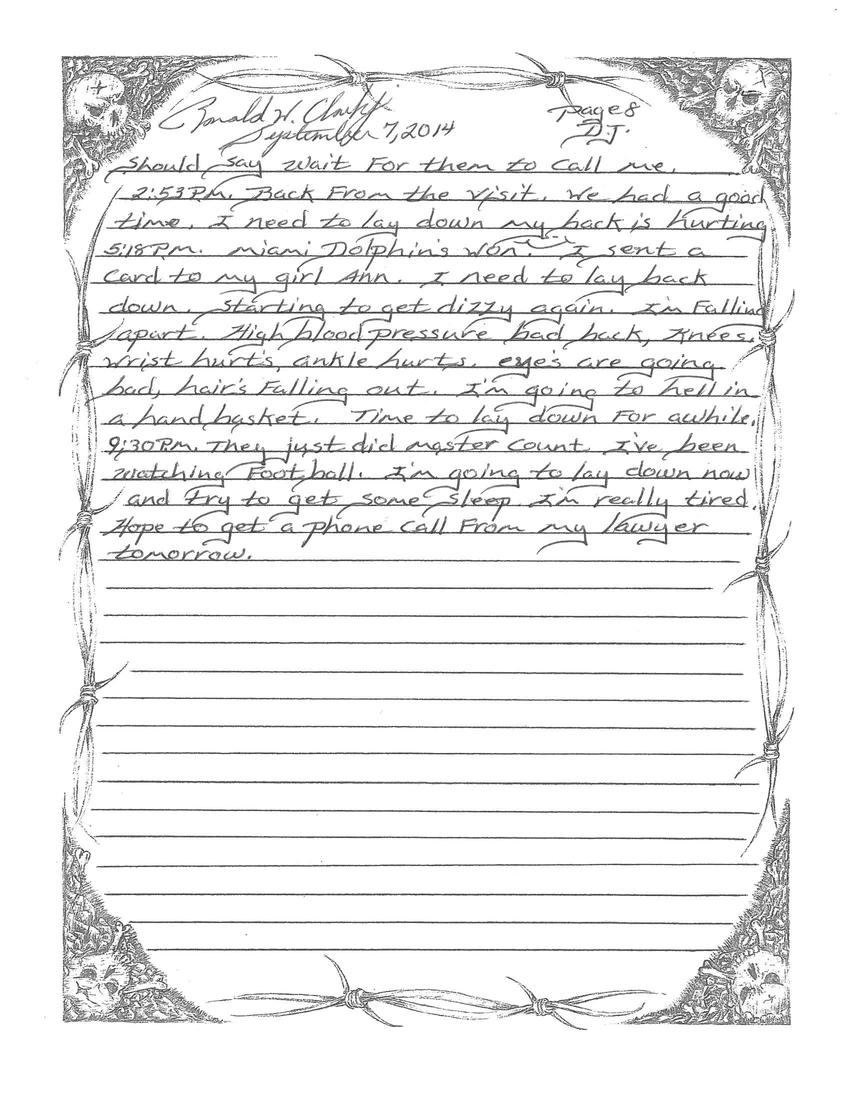 Ronald W. Clark Jr. page 8
September 7, 2014 D.J.
should say wait For them to call me.
2:53 P.M. Back From the visit. We had a good
time. I need to lay down my back is hurting
5:18 P.M. miami Dolphin's won. I sent a
card to my girl Ann. I need to lay back
down. Starting to get dizzy again. I'm Falling
apart. High blood pressure bad back, Knees.
wrist hurt's, ankle hurts. eye's are going
bad, hair's Falling out. I'm going to hell in
a hand basket. Time to lay down For awhile.
9:30 P.M. They just did master count. I've been
watching Football. I'm going to lay down now
and try to get some sleep I'm really tired.
Hope to get a phone call From my lawyer
tomorrow.